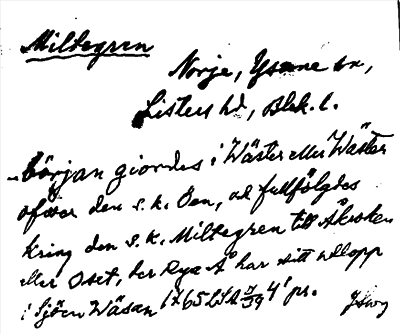 Miltegren
Norje, Ysane sn,
Listers hd, Blek. l.
-början giordes i Wäster eller Wäster
öfver den s. k. Ören, od fullfölgdes
kring den s. k. Miltegren till Åkeholm
eller Oset, der Rya Å har sitt utlopp
i Sjöen Wäsan 1765 LSA 4' pr.